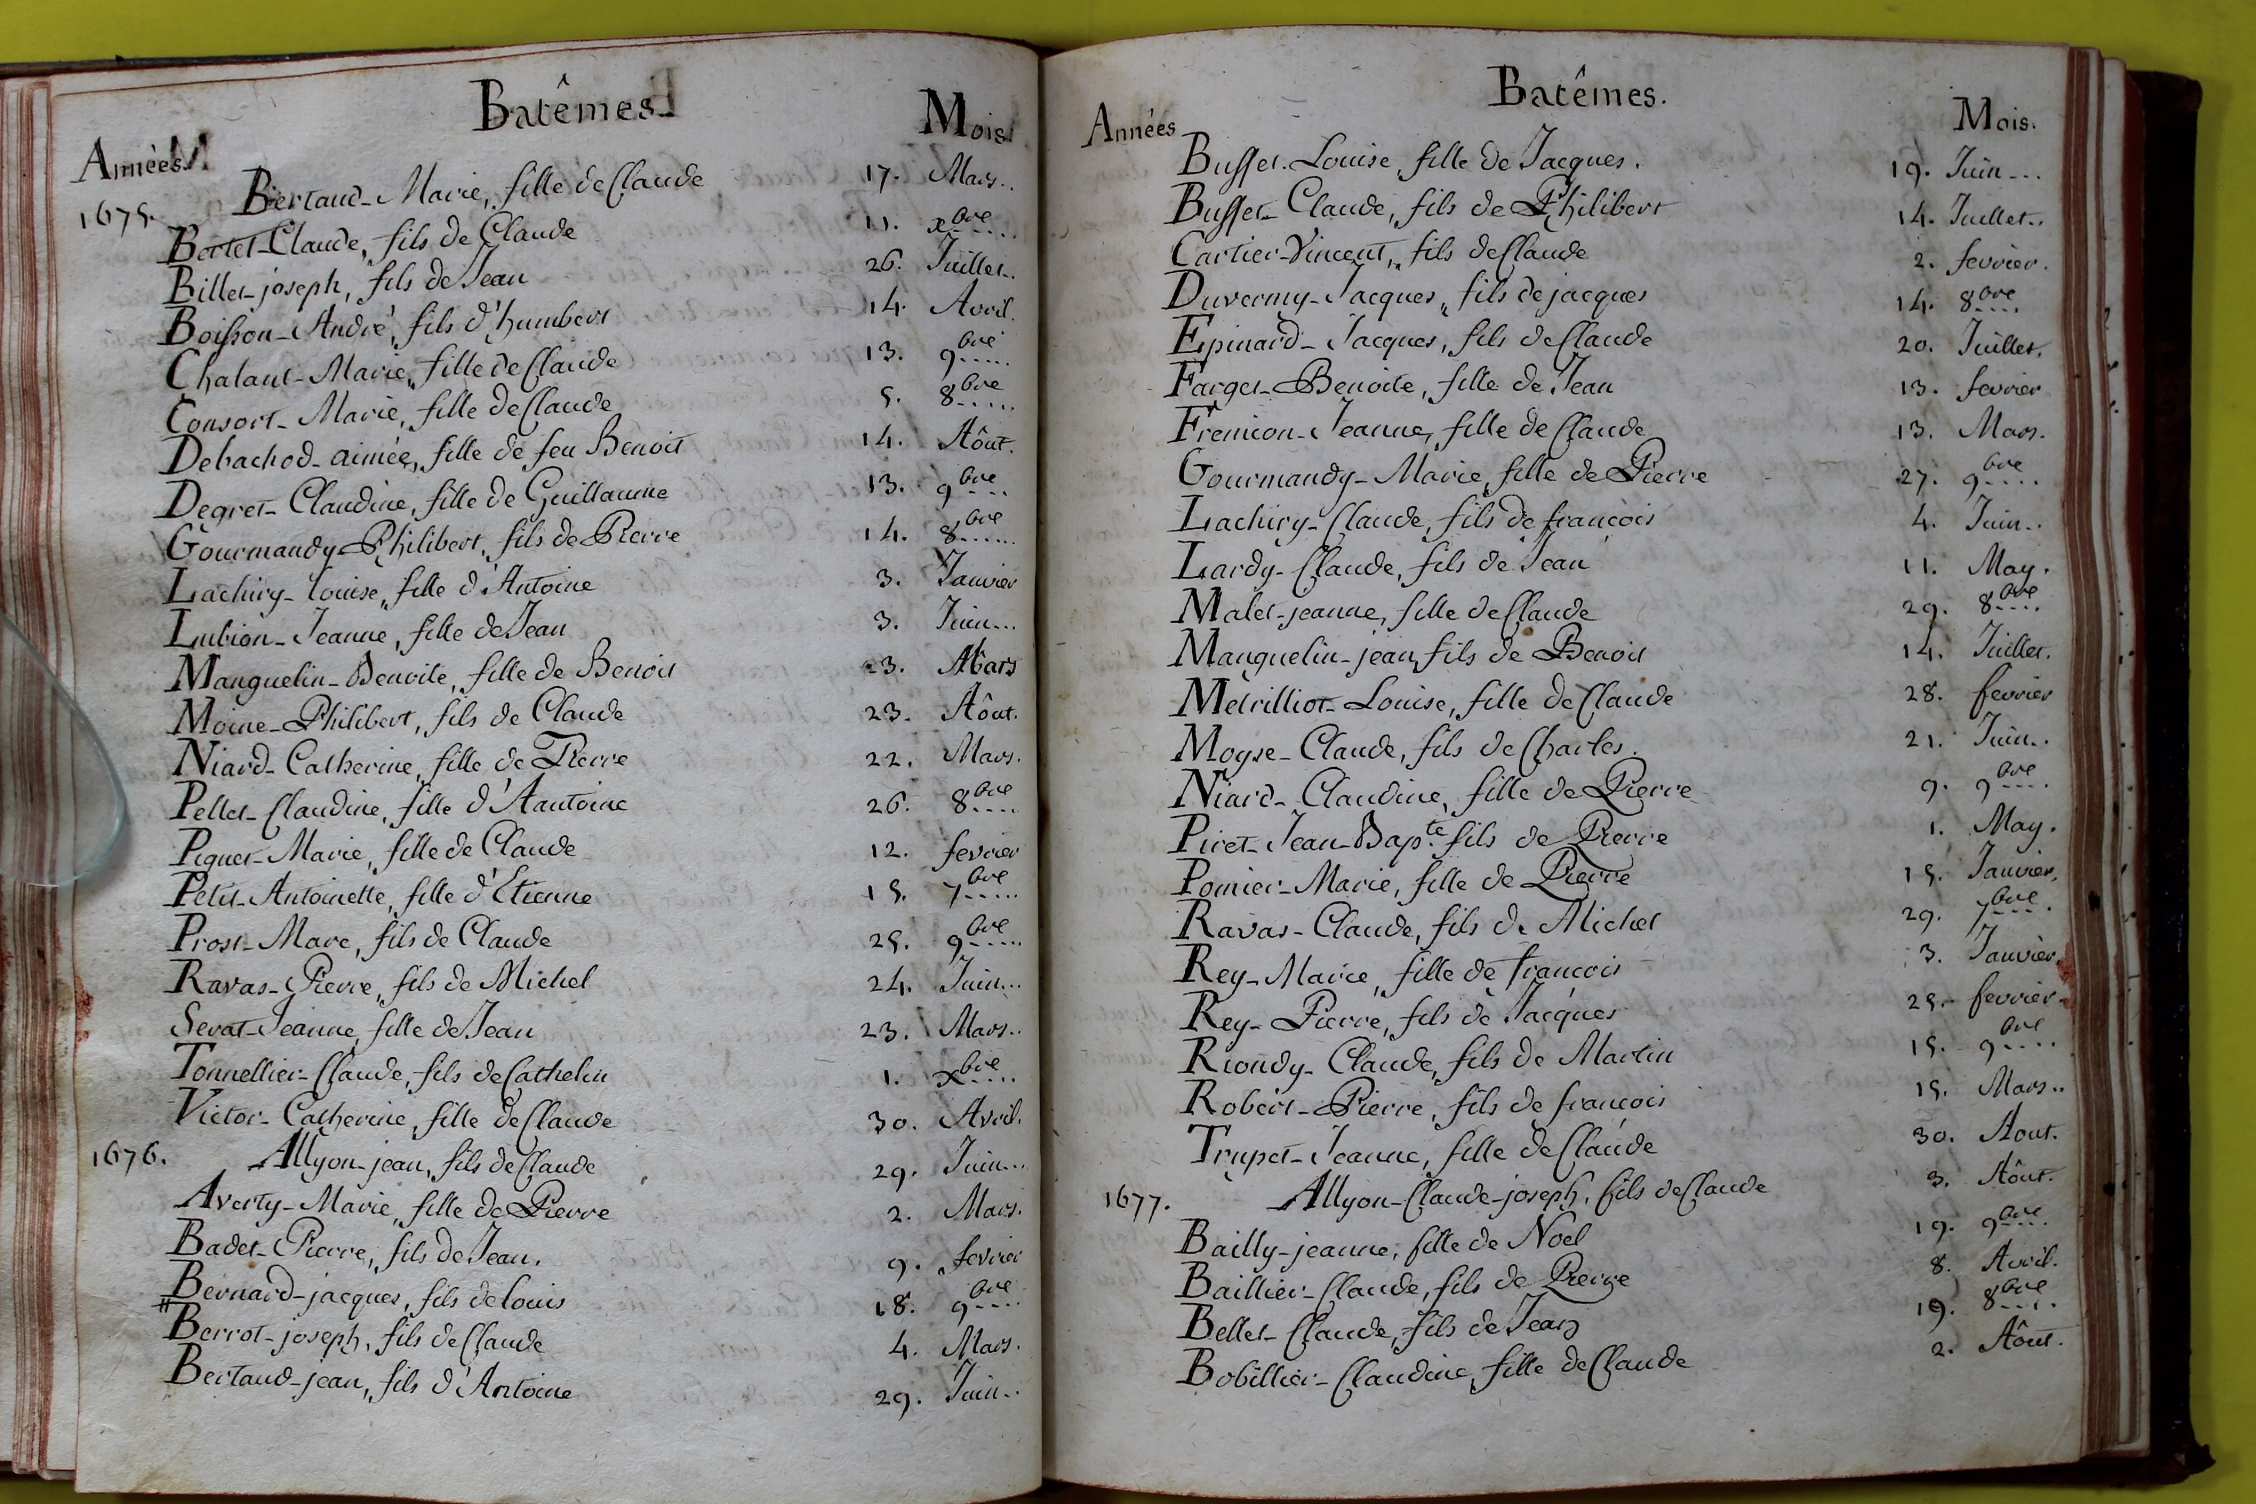 Batêmes
Années. Mois
1675. Bertaud-Marie, fille de Claude 17. Mars..
Bertet-Claude, fils de Claude 11. xbre.....
Billet-joseph, fils de Jean 26. Juillet..
Boisson-André, fils d'humbert 14. Avril.
Chalant-Marie, fille de Claude 13. 9bre.....
Consort-Marie, fille de Claude 5. 8bre.....
Debachod-aimée, fille de feu Benoit 14. Aôut.
Degret-Claudine, fille de Guillaume 13. 9bre....
Gourmandy-Philibert, fils de Pierre 14. 8bre......
Lachiry-louise, fille d'Antoine 3. Janvier
Lubion-Jeanne, fille de Jean 3. Juin...
Manguelin-Benoite, fille de Benoit 23. Mars
Moine-Philibert, fils de Claude 23. Aôut.
Niard-Catherine, fille de Pierre 22. Mars.
Pellet-Claudine, fille d'Aantoine 26. 8bre....
Piquet-Marie, fille de Claude 12. fevrier
Petit-Antoinette, fille d'Etienne 15. 7bre.....
Prost-Marc, fils de Claude 25. 9bre.....
Ravas-Pierre, fils de Michel 24. Juin...
Serat-Jeanne, fille de Jean 23. Mars..
Tonnellier-Claude, fils de Cathelin 1. xbre....
Victor-Catherine, fille de Claude 30. Avril.
1676. Allyon-jean, fils de Claude 29. Juin...
Averty-Marie, fille de Pierre 2. Mars.
Badet-Pierre, fils de Jean. 9. fevrier
Bernard-jacques, fils de louis 18. 9bre....
Berrot-joseph, fils de Claude 4. Mars.
Bertaud-jean, fils d'Antoine 29. Juin..
Batêmes.
Années Mois.
Buffet-Louise, fille de Jacques. 19. Juin...
Buffet-Claude, fils de Philibert 14. Juillet..
Cartier-Vincent, fils de Claude 2. fevrier.
Duverny-Jacques, fils de jacques 14. 8bre....
Epinard-Jacques, fils de Claude 20. Juillet.
Farget-Benoite, fille de Jean 13. fevrier
Fremion-Jeanne, fille de Claude 13. Mars.
Gourmandy-Marie, fille de Pierre 27. 9bre....
Lachiry-Claude, fils de francois 4. Juin..
Lardy-Claude, fils de Jean 11. May.
Malet-jeanne, fille de Claude 29. 8bre....
Manguelin-jean, fils de Benoit 14. Juillet.
Metrilliot-Louise, fille de Claude 28. fevrier
Moyse-Claude, fils de Charles. 21. Juin..
Niard-Claudine, fille de Pierre 9. 9bre....
Piret-Jean-Bapte. fils de Pierre 1. May.
Pomier-Marie, fille de Pierre 15. Janvier.
Ravas-Claude, fils de Michel 29. 7bre....
Rey-Marie, fille de francois 3. Janvier.
Rey-Pierre, fils de Jacques 25. fevrier.
Riondy-Claude, fils de Martin 15. 9bre....
Robert-Pierre, fils de francois 15. Mars..
Trupet-Jeanne, fille de Claude 30. Aout.
1677. Allyon-Claude-joseph, fils de Claude 3. Aôut.
Bailly-jeanne, fille de Noël 19. 9bre....
Baillier-Claude, fils de Pierre 8. Avril.
Bellet-Claude, fils de Jean 19. 8bre....
Bobillier-Claudine, fille de Claude 2. Aôut.